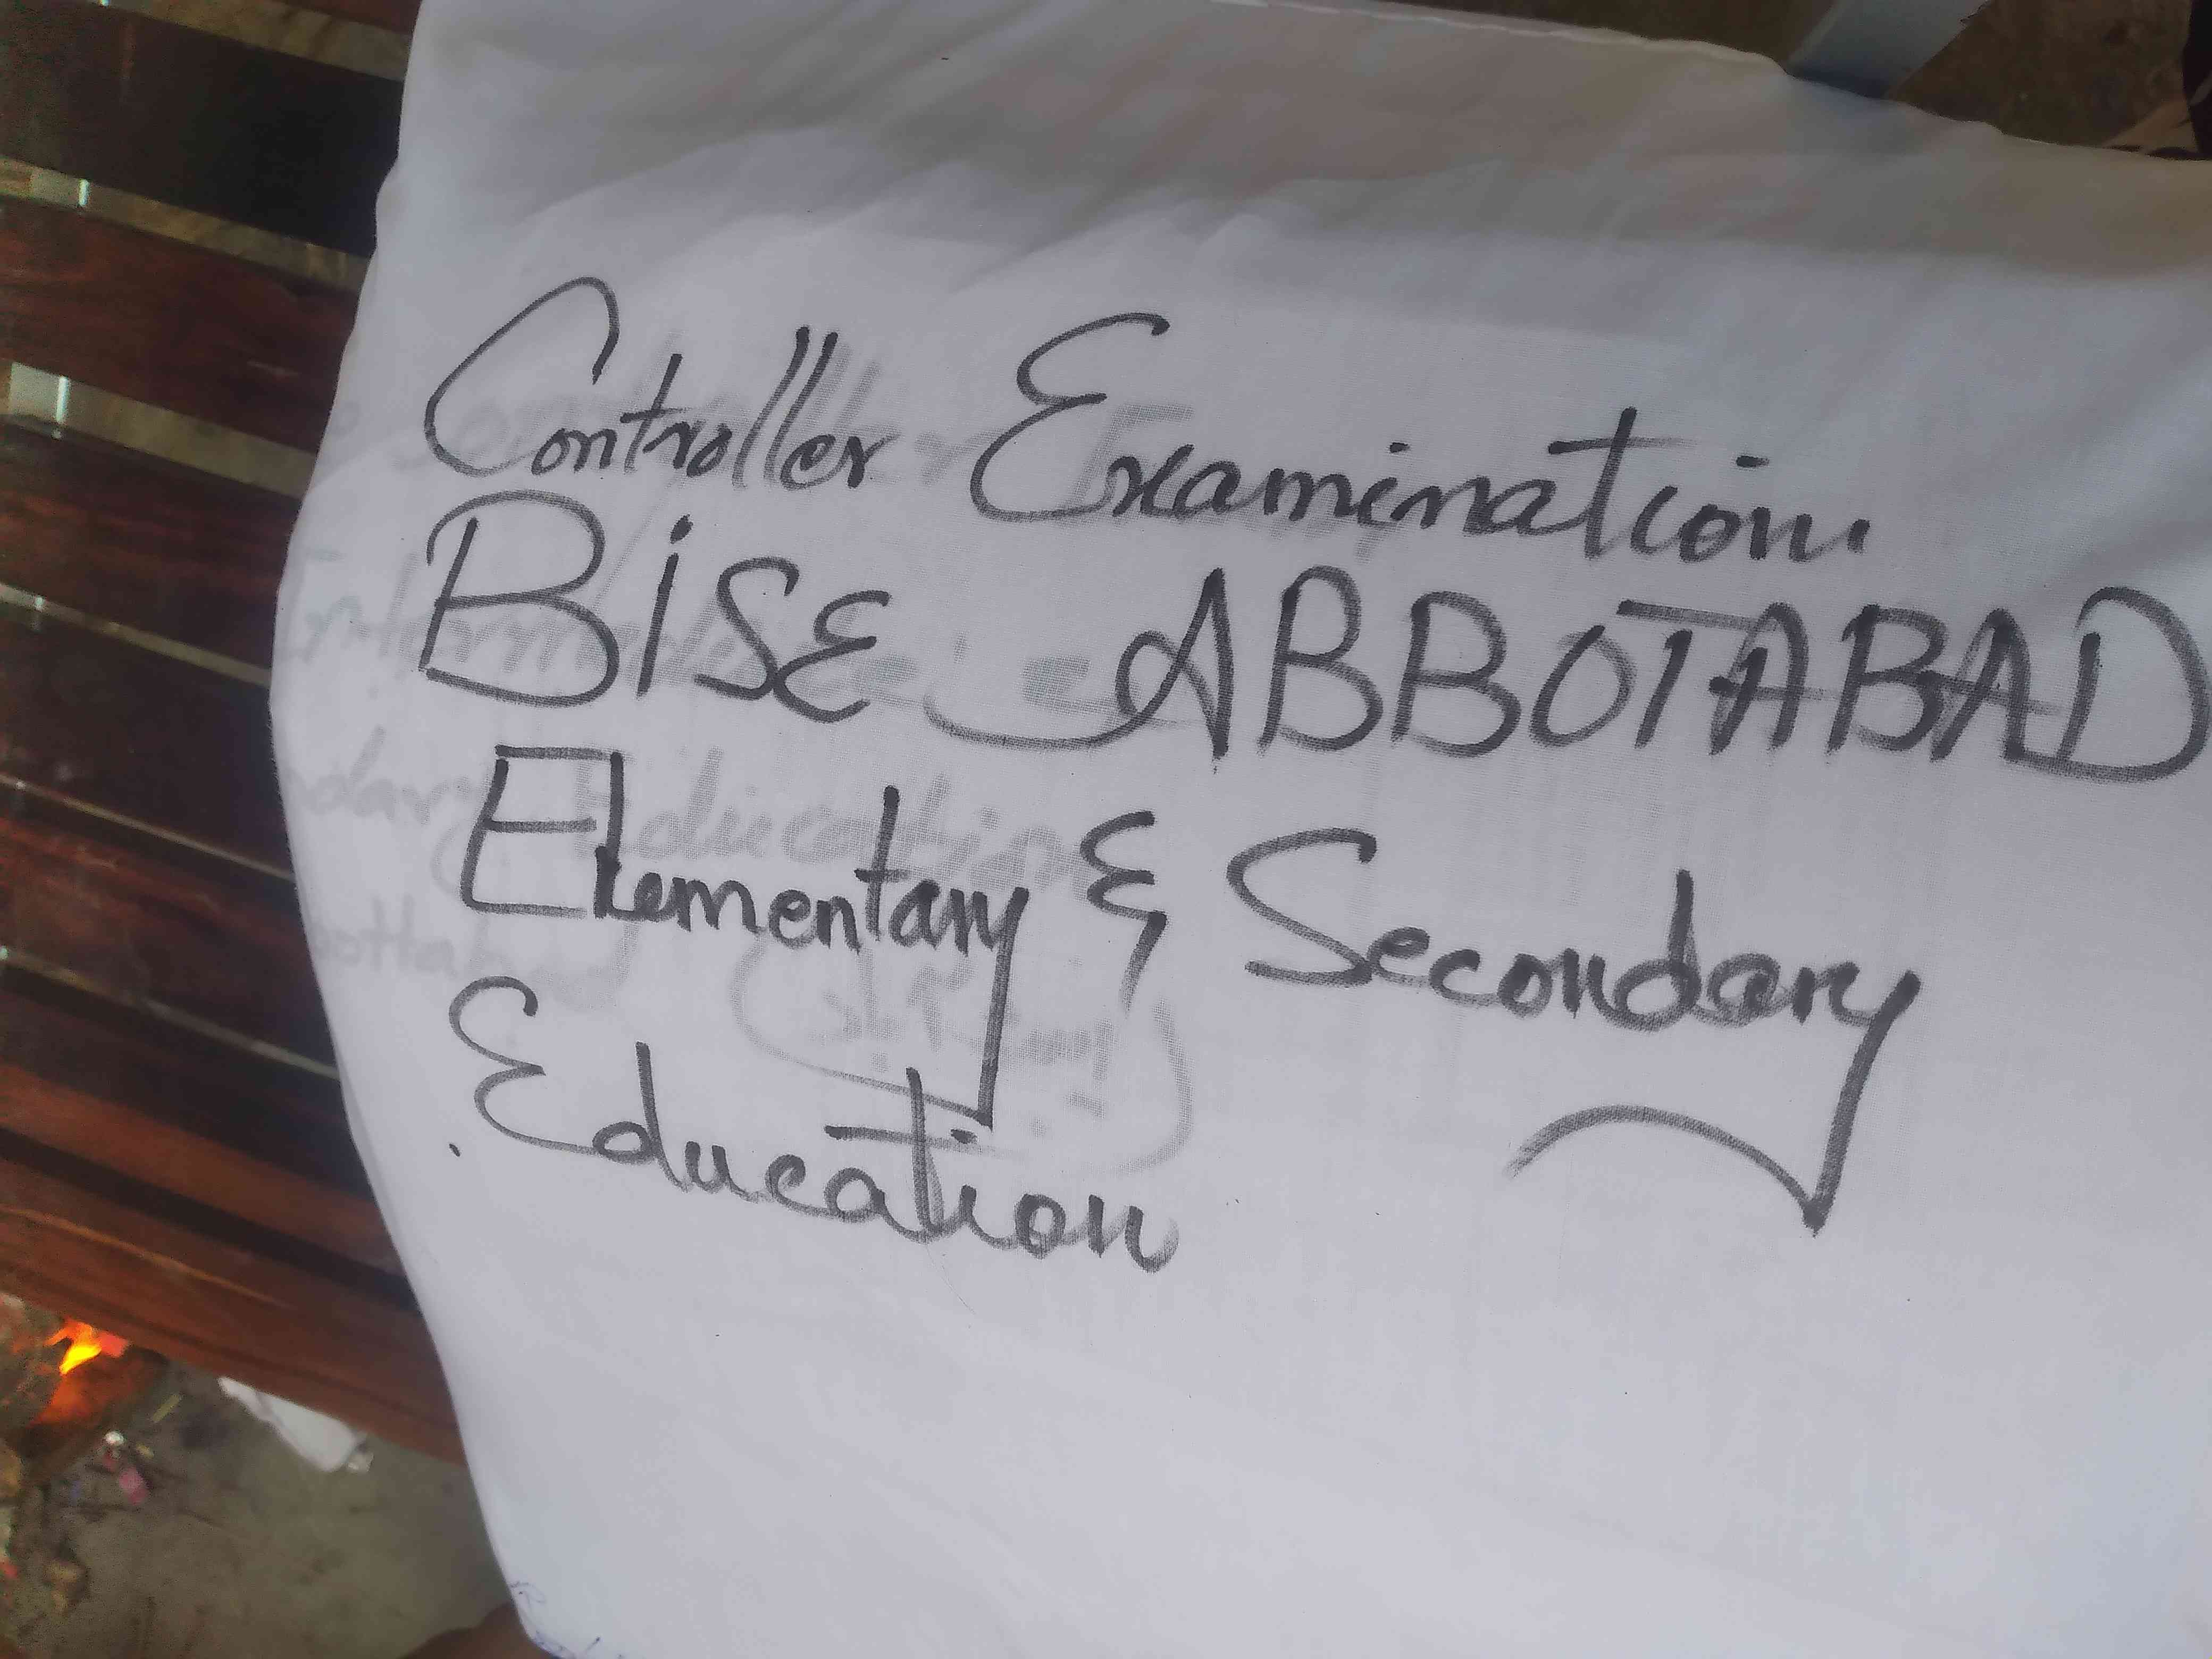 Controller Examination.
BiSE ABBOTABAD
Elementary & Secondary
Education